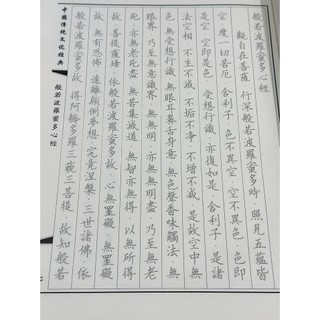 般若波羅蜜多心經
觀自在菩薩·行深般若波羅蜜多時·照見五蘊皆
空·度一切苦厄·舍利子·色不異空·空不異色·色即
是空·空即是色·受想行識·亦復如是·舍利子·是諸
法空相·不生不滅·不垢不淨·不增不減·是故空中無
色·無受想行識·無眼耳鼻舌身意·無色聲香味觸法·無
眼界·乃至無意識界·無無明·亦無無明盡·乃至無老
死·亦無老死盡·無苦集滅道·無智亦無得·以無所得
故·菩提薩埵·依般若波羅蜜多故·心無罣礙·無罣礙
故·無有恐怖·遠離顛倒夢想·究竟涅槃·三世諸佛·依
般若波羅蜜多故·得阿耨多羅三藐三菩提·故知般若
中國傳統文化經典
般若波羅蜜多心經